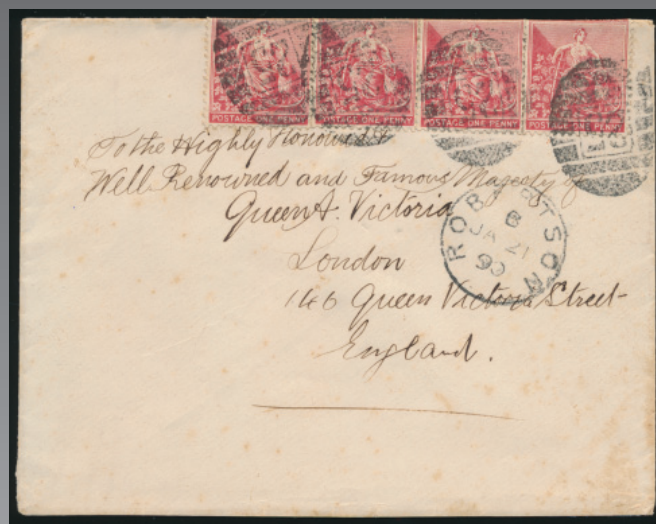 POSTAGE ONE PENNY POSTAGE ONE PENNY POSTAGE ONE PENNY POSTAGE ONE PENNY
To the Highly Honoured &
Well Renowned and Famous Magesty of
Queen A. Victoria
London
146 Queen Victoria Street
England.
ROBERTSON
B
JA 21
90